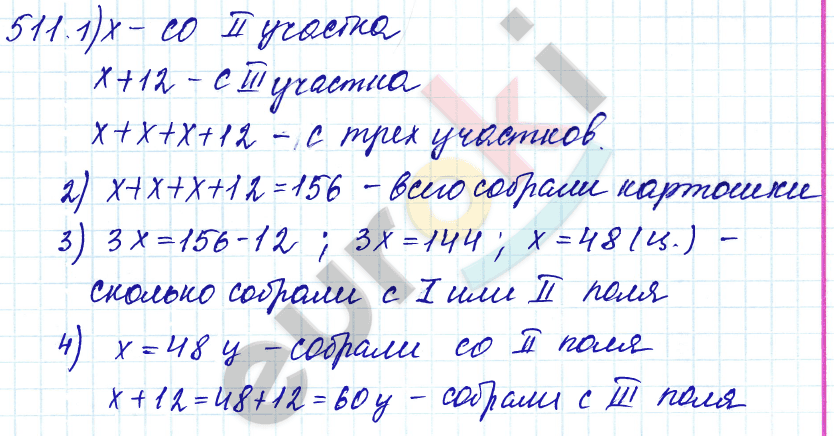 511.1) x – со II участка
x+12 – с III участка
x+x+x+12 – с трех участков.
2) x+x+x+12=156 – всего собрали картошки
3) 3x=156-12 ; 3x=144 ; x=48 (ц.) –
сколько собрали с I или II поля
4) x=48 ц – собрали со II поля
x+12=48+12=60ц – собрали с III поля
euroki